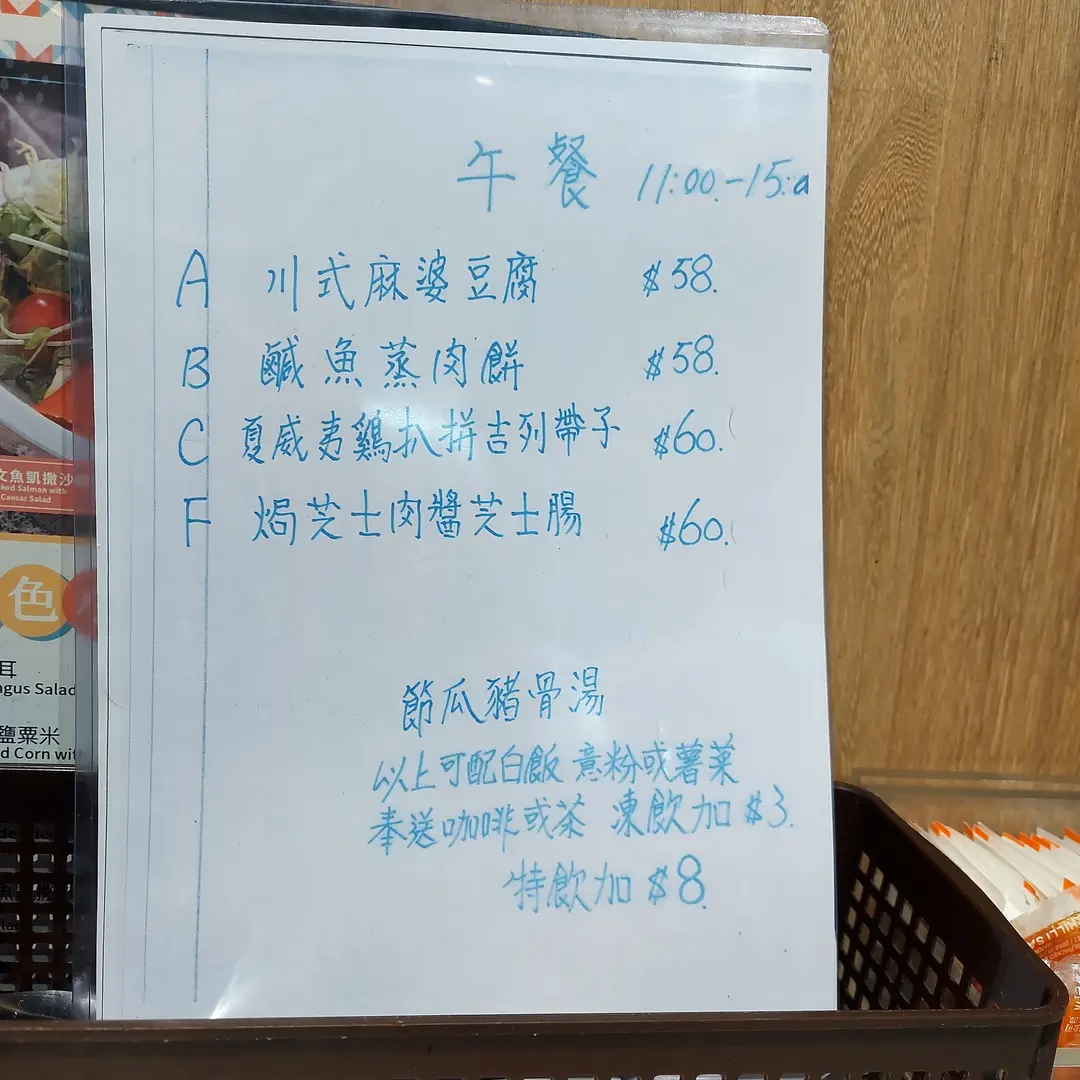 午餐 11:00.-15:0
A 川式麻婆豆腐 $58.
B 鹹魚蒸肉餅 $58.
C 夏威夷鷄扒拼吉列帶子 $60.
F 焗芝士肉醬芝士腸 $60.
節瓜豬骨湯
以上可配白飯 意粉或薯菜
奉送咖啡或茶 凍飲加 $3.
特飲加 $8.
文魚凱撒沙
ked Salmon with
Caesar Salad
色
耳
ngus Salad
鹽粟米
d Corn wit